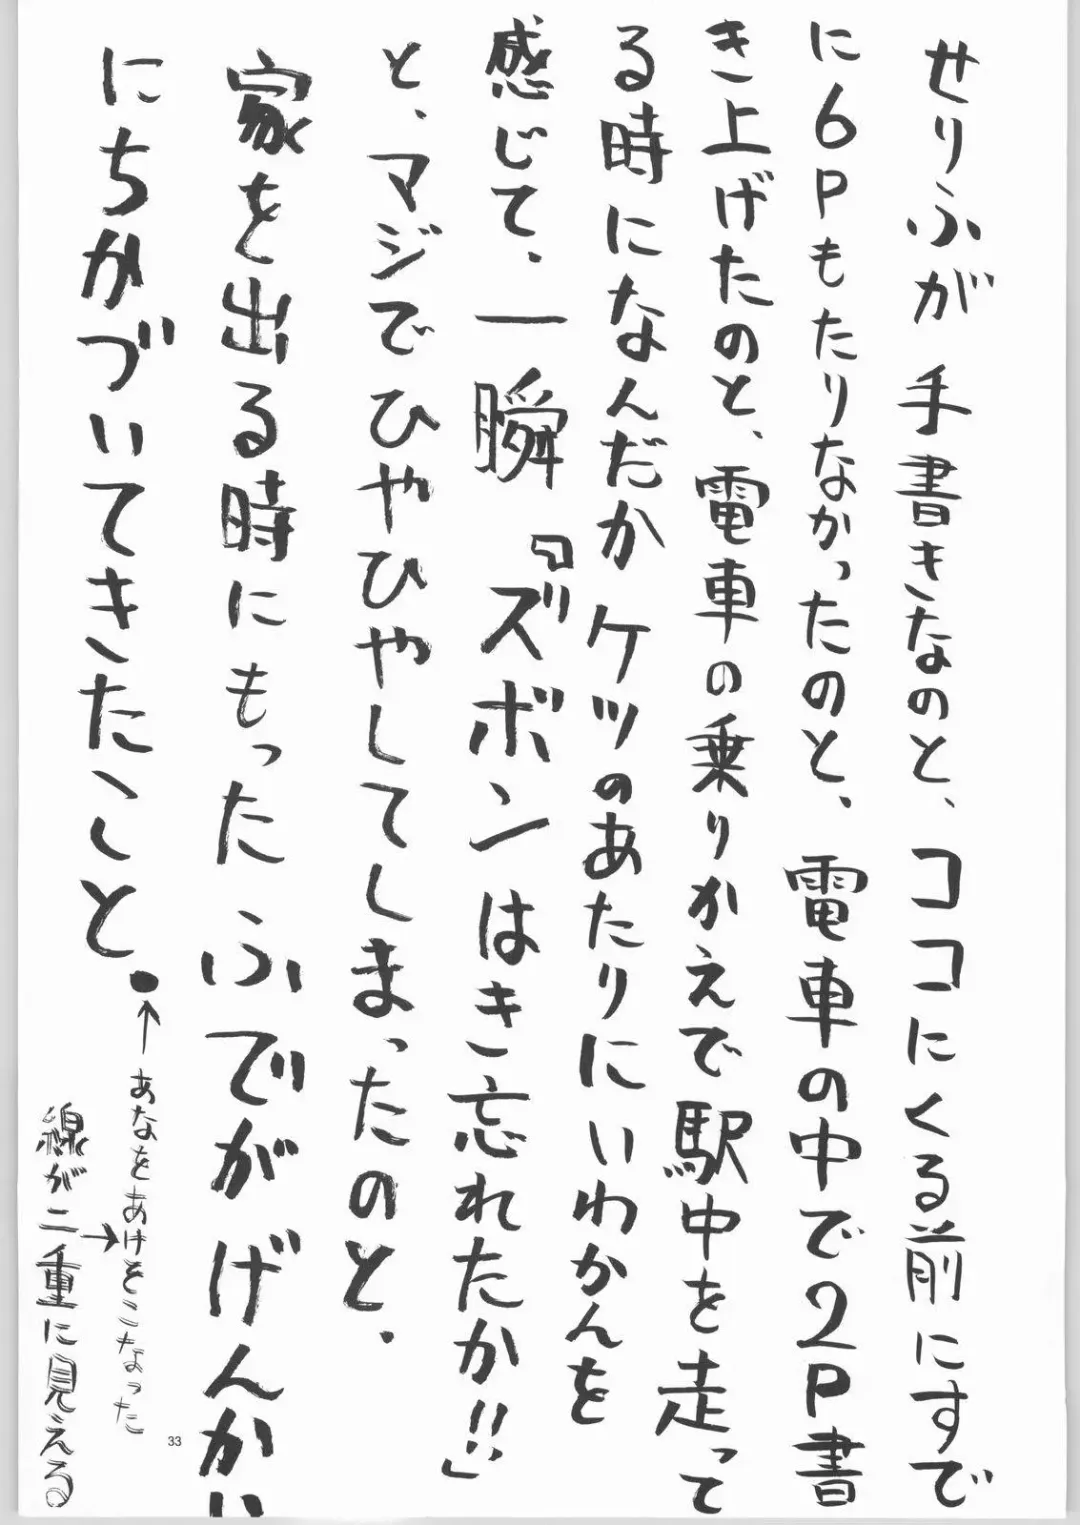 せりふが手書きなのと、ココにくる前にすで
に6Pもたりなかったのと、電車の中で2P書
き上げたのと、電車の乗りかえで駅中を走って
る時になんだかケツのあたりにいわかんを
感じて、一瞬『ズボンはき忘れたか!!』
と、マジでひやひやしてしまったのと、
家を出る時にもったふでがげんかい
にちかづいてきたこと。
↑あなをあけそこなった
→線が二重に見える
33